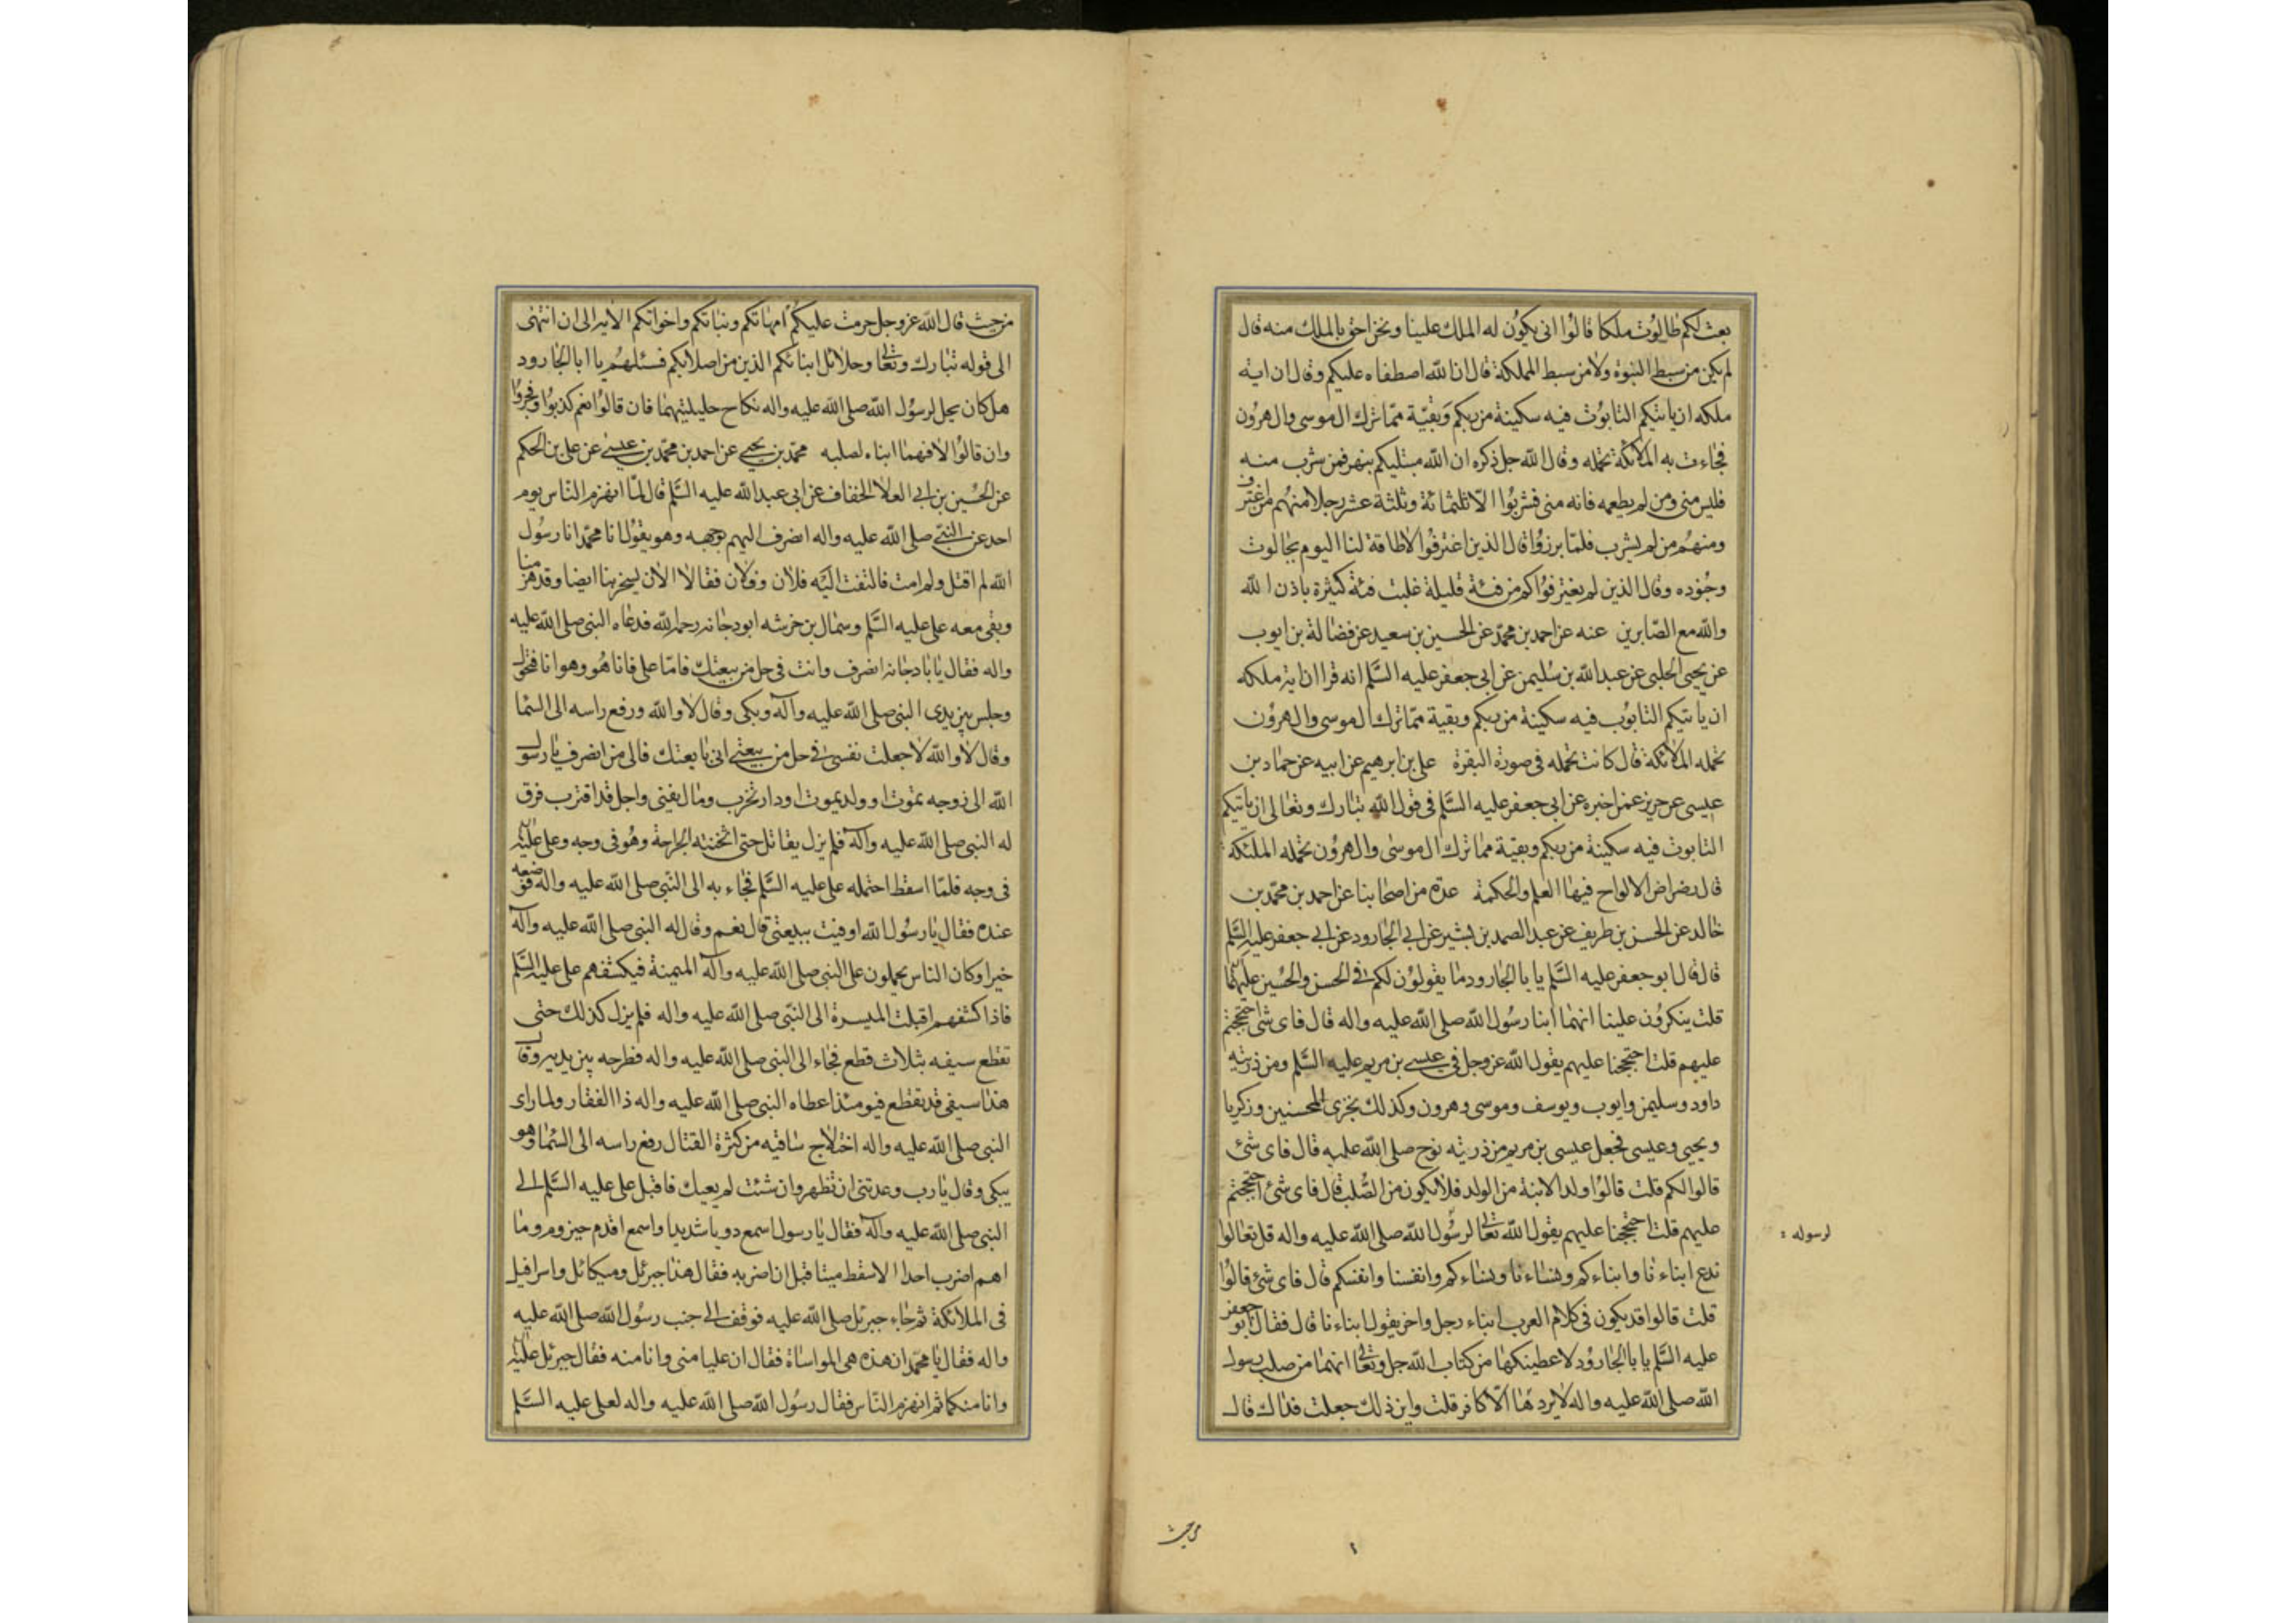 بعث لكم طالوت ملكا قالوا انى يكون له الملك علينا ونحن احق بالملك منه قال
لم يكن من سبط النبوة ولا من سبط المملكة قال ان الله اصطفاه عليكم وقال ان اية
ملكه ان ياتيكم التابوت فيه سكينة من ربكم وبقيّة ممّا ترك ال موسى وال هرون
فجاءت به الملائكة تحمله وقال الله جل ذكره ان الله مبتليكم بنهر فمن شرب منه
فليس منى ومن لم يطعمه فانه منى فشربوا الّا ثلثمائة وثلثة عشر رجلا منهم من اغترف
ومنهم من لم يشرب فلمّا برزوا قال الذين اغترفوا لا طاقة لنا اليوم بجالوت
وجنوده وقال الذين لم يغترفوا كم من فئة قليلة غلبت فئة كثيرة باذن الله
والله مع الصّابرين عنه عن احمد بن محمّد عن الحسين بن سعيد عن فضالة بن ايوب
عن يحيى الحلبى عن عبد الله بن سليمن عن ابى جعفر عليه السَّلم انه قرا ان اية ملكه
ان ياتيكم التابوب فيه سكينة من ربكم وبقية ممّا ترك ال موسى وال هرون
تحمله الملائكة قال كانت تحمله فى صورة البقرة على بن ابرهيم عن ابيه عن حماد بن
عيسى عن حريز عمن اخبره عن ابى جعفر عليه السَّلم فى قول الله تبارك وتعالى ان ياتيكم
التابوت فيه سكينة من ربكم وبقيّة مما ترك ال موسى وال هرون تحمله الملئكة
قال رضراض الالواح فيها العلم والحكمة عدة من اصحابنا عن احمد بن محمّد بن
خالد عن الحسن بن طريف عن عبد الصمد بن بشير عن ابى الجارود عن ابى جعفر عليه السَّلم
قال قال ابو جعفر عليه السَّلم يا با الجارود ما يقولون لكم فى الحسن والحسين عليهما
قلت ينكرون علينا انهما ابنا رسول الله صلى الله عليه واله قال فاى شئ احتججتم
عليهم قلت احتججنا عليهم يقول الله عز وجل فى عيسى بن مريم عليه السَّلم ومن ذريته
داود وسليمن وايوب ويوسف وموسى وهرون وكذلك نجزى المحسنين وزكريا
ويحيى وعيسى فجعل عيسى بن مريم من ذريته نوح صلى الله عليه قال فاى شئ
قالوا لكم قلت قالوا ولد الابنة من الولد فلا يكون من الصُّلب قال فاى شئ احتججتم
عليهم قلت احتججنا عليهم يقول الله تعالى لرسول الله صلى الله عليه واله قل تعالوا
لرسوله
ندع ابناءنا وابناءكم ونساءنا ونساءكم وانفسنا وانفسكم قال فاى شئ قالوا
قلت قالوا قد يكون فى كلام العرب ابناء رجل واخر يقول ابناءنا قال فقال ابو جعفر
عليه السَّلم يا با الجارود لاعطينكها من كتاب الله جل وتعالى انهما من صلب رسول
الله صلى الله عليه واله لا يردها الّا كافر قلت واين ذلك جعلت فداك قال
من حيث
من حيث قال الله عز وجل حرمت عليكم امهاتكم وبناتكم واخواتكم الاية الى ان انتهى
الى قوله تبارك وتعالى وحلائل ابنائكم الذين من اصلابكم فسئلهم يا ابا الجارود
هل كان يحل لرسول الله صلى الله عليه واله نكاح حليلتيهما فان قالوا نعم كذبوا وفجروا
وان قالوا لا فهما ابناه لصلبه محمّد بن يحيى عن احمد بن محمّد بن عيسى عن على بن الحكم
عن الحسين بن ابى العلا الخفاف عن ابى عبد الله عليه السَّلم قال لمّا انهزم الناس يوم
احد عن النبىّ صلى الله عليه واله انصرف اليهم بوجهه وهو يقول انا محمّد انا رسول
الله لم اقتل ولم امت فالتفت اليه فلان وفلان فقالا الان يسخر بنا ايضا وقد هزمنا
وبقى معه على عليه السَّلم وسماك بن خرشه ابو دجانه رحمه الله فدعاه النبى صلى الله عليه
واله فقال يا با دجانه انصرف وانت فى حل من بيعتك فامّا على فانا هو وهو انا فتحول
وجلس بين يدى النبى صلى الله عليه وآله وبكى وقال لا والله ورفع راسه الى السّما
وقال لا والله لا جعلت نفسى فى حل من بيعتى انى بايعتك فالى من انصرف يا رسول
الله الى زوجه تموت او ولد يموت او دار تخرب ومال يفنى واجل قد اقترب فرق
له النبى صلى الله عليه وآله فلم يزل يقاتل حتى اثخنته الجراحة وهو فى وجه وعلى عليه
فى وجه فلمّا اسقط احتمله على عليه السَّلم فجاء به الى النّبى صلى الله عليه واله فوضعه
عنده فقال يا رسول الله اوفيت ببيعتى قال نعم وقال له النبى صلى الله عليه وآله
خيرا وكان الناس يحملون على النبى صلى الله عليه وآله الميمنة فيكشفهم على عليه السَّلم
فاذا كشفهم اقبلت الميسرة الى النّبى صلى الله عليه واله فلم يزل كذلك حتى
تقطع سيفه بثلاث قطع فجاء الى النبى صلى الله عليه واله فطرحه بين يديه وقال
هذا سيفى قد تقطع فيومئذ اعطاه النبى صلى الله عليه واله ذا الفقار ولما راى
النبى صلى الله عليه واله اختلاج ساقيه من كثرة القتال رفع راسه الى السّما وهو
يبكى وقال يا رب وعدتنى ان تظهر وان شئت لم يعيك فاقبل على عليه السَّلم الى
النبى صلى الله عليه وآله فقال يا رسول اسمع دويا شديدا واسمع اقدم حيزوم وما
اهم اضرب احدا الا سقط ميتا قبل ان اضربه فقال هذا جبرئل وميكائل واسرافيل
فى الملائكة ثم جاء جبرئل صلى الله عليه فوقف الى جنب رسول الله صلى الله عليه
واله فقال يا محمّد ان هذه هى المواساة فقال ان عليا منى وانا منه فقال جبرئل عليه
وانا منكما ثم انهزم النّاس فقال رسول الله صلى الله عليه واله لعلى عليه السَّلم